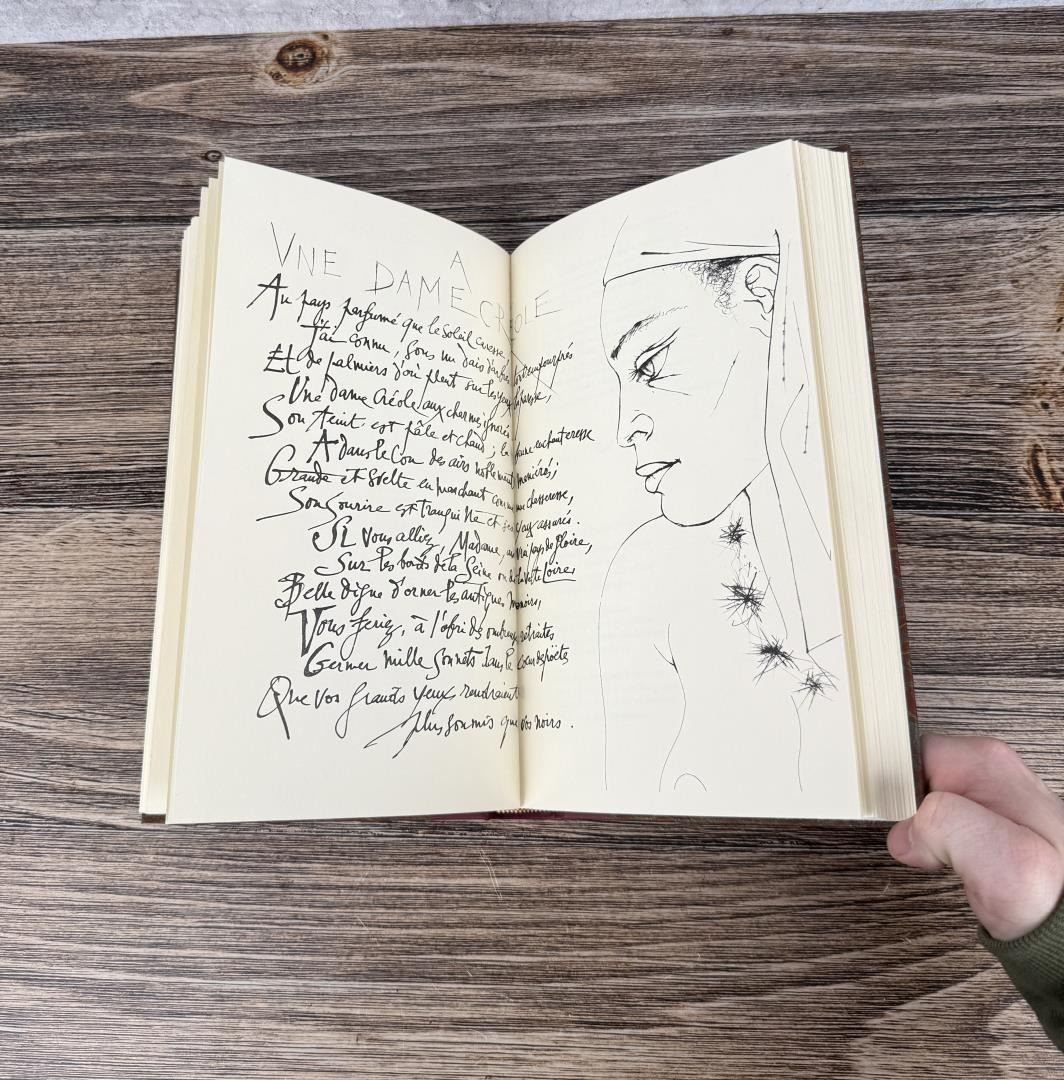 VNE A
DAME CREOLE
Au pays parfumé que le Soleil caresse,
J'ai connu, Sous un dais d'arbres tout empourprés
Et de palmiers d'où pleut sur les yeux la paresse,
Une dame Créole aux charmes ignorés.
Son teint est pâle et chaud ; la brune enchanteresse
A dans le Cou des airs noblement maniérés ;
Grande et svelte en marchant comme une chasseresse,
Son Sourire est tranquille et ses yeux assurés.
Si vous alliez, Madame, au vrai pays de Gloire,
Sur les bords de la Seine ou de la verte Loire,
Belle digne d'orner les antiques manoirs,
Vous feriez, à l'abri des ombreuses retraites
Germer mille Sonnets dans le cœur des poëtes
Que vos grands yeux rendraient
plus soumis que vos noirs.